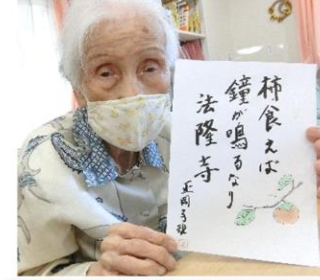 柿食えば
鐘が鳴るなり
法隆寺
正岡子規